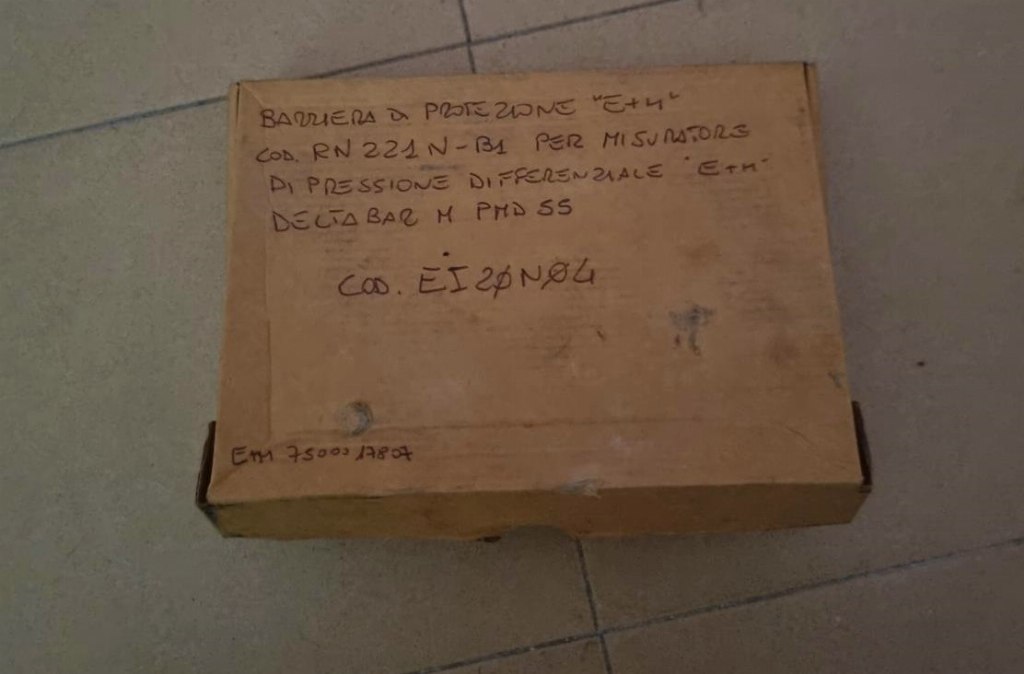 BARRIERA DI PROTEZIONE "E+H"
COD. RN221N-B1 PER MISURATORE
DI PRESSIONE DIFFERENZIALE "E+H"
DELTABAR M PMD 55
COD. EI20N04
E+H